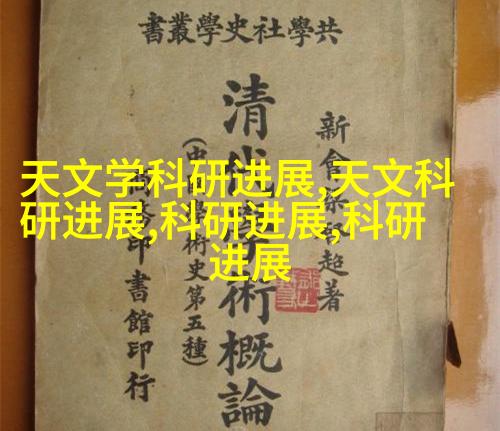 共學社史學叢書
新會梁超著
清代學術概論
(中學術史第五種)
印書館印行
天文学科研进展,天文科
研进展,科研进展,科研
进展